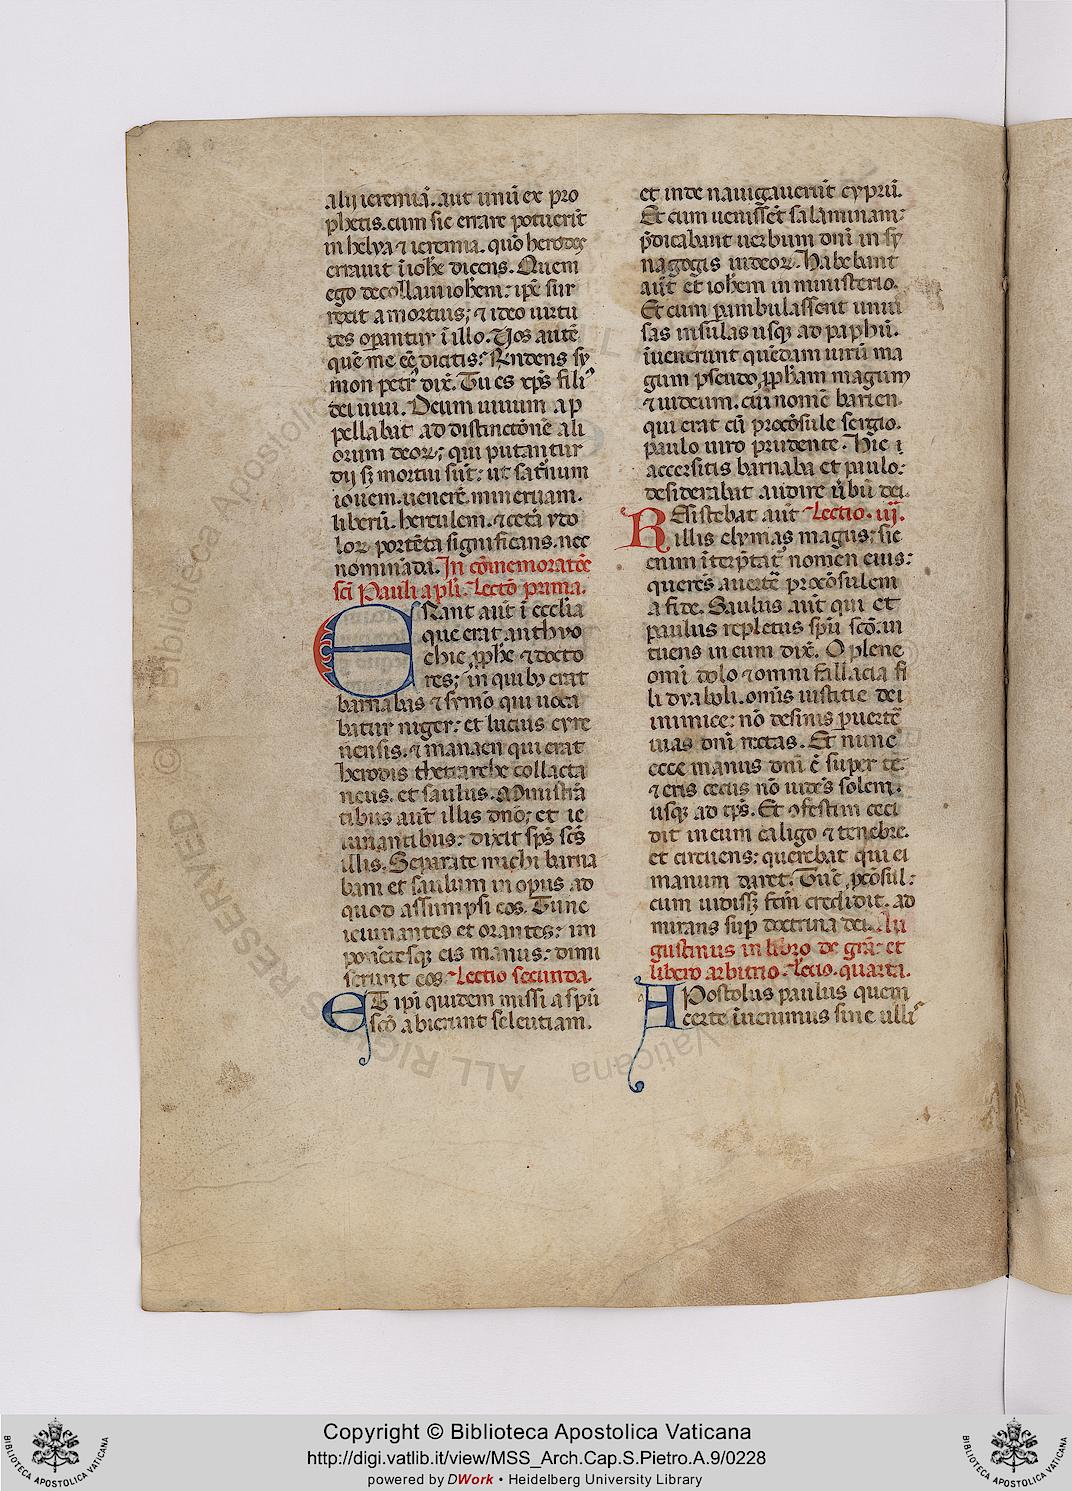 alij ieremiā. aut unū ex pro
phetis. cum sic errare potuerīt
in helya ⁊ ieremia. quō herodes
errauit ī ioħe dicens. Quem
ego decollaui ioħem: ip̄e sur
rexit a mortuis; ⁊ ideo uirtu
tes operantur ī illo. Uos autē
quē me eē dicitis: Rn̄dens sy
mon petr᾿ dix̄. Tu es xp̄s fili᾿
dei uiui. Deum uiuum ap
pellabat ad distinctōnē ali
orum deoꝝ; qui putantur
dij sꝫ mortui sūt: ut sat᾿num
iouem. uenerē. mineruam.
liberū. herculem. ⁊ cetā ydo
loꝝ portēta significans. nec
nominada. In cōmemoratōe
sc̄i Pauli apl̄i. Lectō prima.
ERant aut̄ ī ecclīa
que erat anthyo
chie ꝓph̄e ⁊ docto
res; in quibꝫ erat
barnabas ⁊ symō qui uoca
batur niger: et lucius cyre
nensis. ⁊ manaen qui erat
herodis thetrarche collacta
neus. et saulus. Ministrā
tibus aut̄ illis dn̄o; et ie
iunantibus: dixit sp̄s sc̄s
illis. Separate michi barna
bam et saulum in opus ad
quod assumpsi eos. Tunc
ieiunantes et orantes: im
ponētesqꝫ eis manus: dimi
serunt eos. Lectio secunda.
ET ip̄i quidem missi a sp̄u
sc̄o abierunt seleutiam.
et inde nauigauerūt cyprū.
Et cum uenissēt salaminam:
p̄dicabant uerbum dn̄i in sy
nagogis iudeoꝝ. Habebant
aut̄ et ioħem in ministerio.
Et cum ꝑambulassent uniu
sas insulas usqꝫ ad paphū.
īuenerunt quēdam uirū ma
gum pseudo ꝓph̄am magum
⁊ iudeum. cui nomē barieu.
qui erat cū procōsule sergio.
paulo uiro prudente. Hic
accersitis barnaba et paulo:
desiderabat audire ūbū dei.
REsistebat aut̄ Lectio. iij.
illis elymas magus: sic
enim īterp̄tat᾿ nomen eius:
querēs auertē procōsulem
a fide. Saulus aut̄ qui et
paulus repletus sp̄u sc̄o: in
tuens in eum dix̄. O plene
omī dolo ⁊ omni fallacia fi
li dyaboli. omīs iustitie dei
inimice: nō desinis ꝑuertē
uias dn̄i rectas. Et nunc
ecce manus dn̄i ē super te:
⁊ eris cecus nō uidēs solem.
usqꝫ ad tp̄s. Et ꝯfestim ceci
dit in eum caligo ⁊ tenebre.
et circuens: querebat qui ei
manum daret. Tūc ꝓcōsul:
cum uidissꝫ fc̄m credidit. ad
mirans sup̄ doctrina dei. Au
gustinus in libro de grā: et
libero arbitrio. Lecio. quarta.
APostolus paulus quem
certe īuenimus sine ulli᾿
Copyright © Biblioteca Apostolica Vaticana
http://digi.vatlib.it/view/MSS_Arch.Cap.S.Pietro.A.9/0228
powered by DWork • Heidelberg University Library
BIBLIOTECA APOSTOLICA VATICANA
BIBLIOTECA APOSTOLICA VATICANA